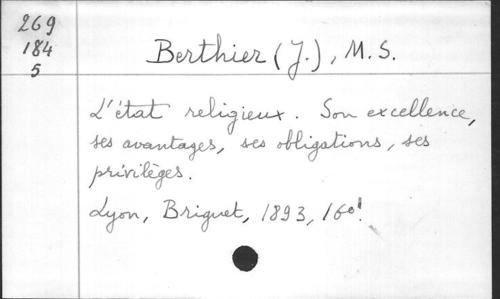 269
184
5
Berthier (J.), M.S.
L'état religieux. Son excellence,
ses avantages, ses obligations, ses
privilèges.
Lyon, Briguet, 1893, 16º!